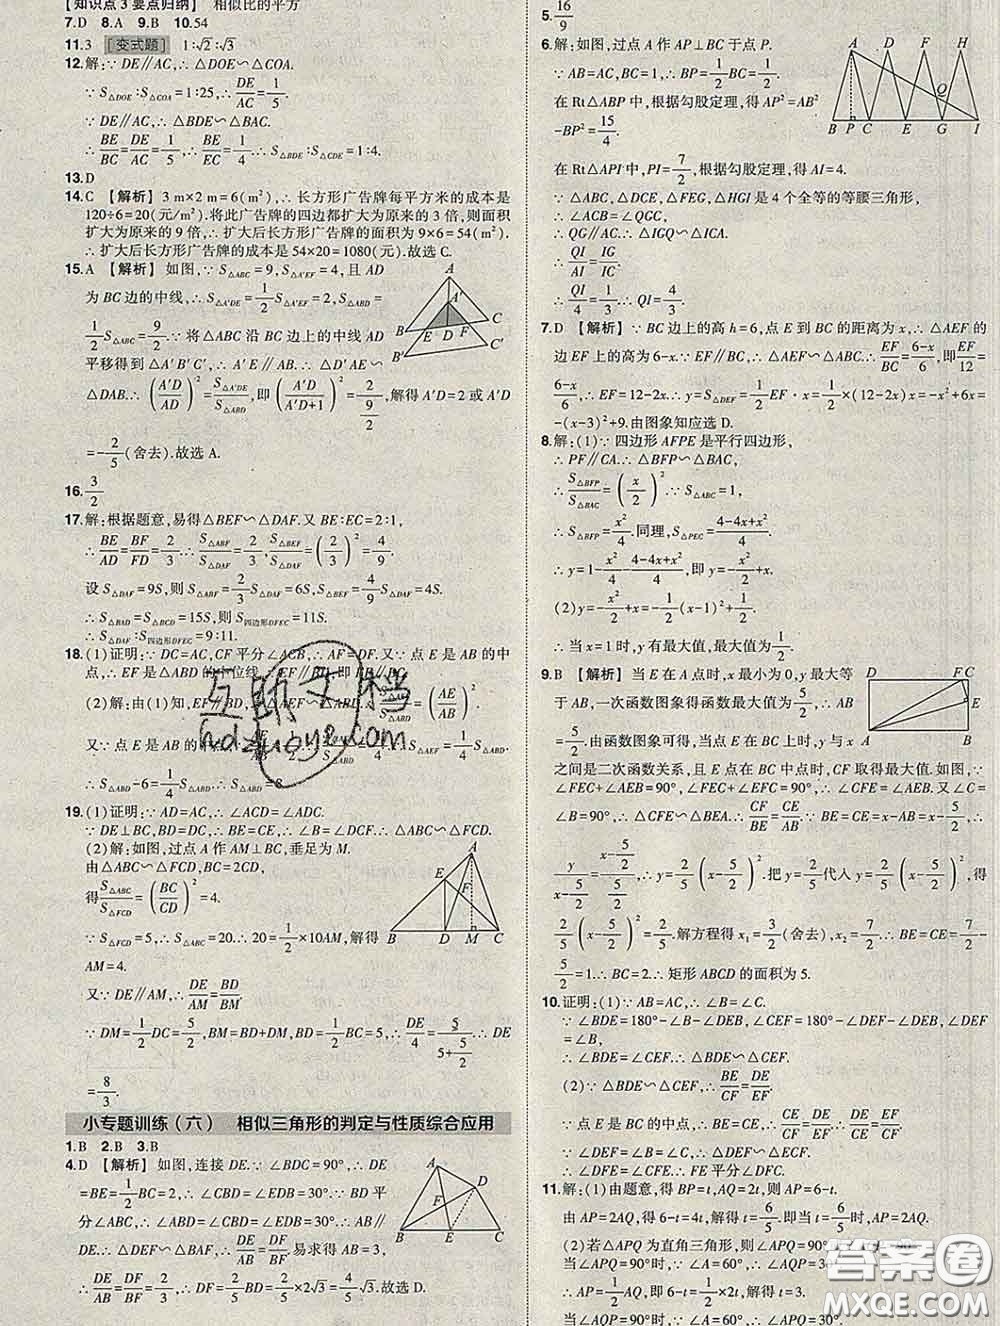 [知识点3要点归纳] 相似比的平方
7.D 8.A 9.B 10.54
11.3 [变式题] 1∶√2∶√3
12.解:∵DE∥AC,∴△DOE∽△COA.
∵S△DOE∶S△COA=1∶25,∴DE/AC=1/5.
∵DE∥AC,∴△BDE∽△BAC.
∴BE/BC=DE/AC=1/5,∴BE/EC=1/4,∴S△BDE∶S△CDE=1∶4.
13.D
14.C 【解析】3 m×2 m=6(m²),∴长方形广告牌每平方米的成本是
120÷6=20(元/m²).将此广告牌的四边都扩大为原来的3倍,则面积
扩大为原来的9倍,∴扩大后长方形广告牌的面积为9×6=54(m²).
∴扩大后长方形广告牌的成本是54×20=1080(元).故选C.
15.A 【解析】如图,∵S△ABC=9,S△A′EF=4,且AD
为BC边的中线,∴S△A′DE=1/2 S△A′EF=2,S△ABD=
1/2 S△ABC=9/2.∵将△ABC沿BC边上的中线AD
平移得到△A′B′C′,∴A′E∥AB.∴△DA′E∽
△DAB.∴(A′D/AD)²=S△A′DE/S△ABD,即(A′D/(A′D+1))²=2/(9/2),解得A′D=2或A′D
=-2/5(舍去).故选A.
A A′ B E D F C B′ C′
16.3/2
17.解:根据题意,易得△BEF∽△DAF.又BE∶EC=2∶1,
∴BE/AD=BF/FD=2/3.∴S△ABF/S△DAF=2/3,S△BEF/S△DAF=(2/3)²=4/9.
设S△DAF=9S,则S△ABF=2/3 S△DAF=6S,S△BEF=4/9 S△DAF=4S.
∴S△BAD=S△BCD=15S,则S四边形DFEC=11S.
∴S△DAF∶S四边形DFEC=9∶11.
18.(1)证明:∵DC=AC,CF平分∠ACB,∴AF=DF.又∵点E是AB的中
点,∴EF是△ABD的中位线.∴EF∥BD,即EF∥BC.
(2)解:由(1)知,EF∥BD,∴△AEF∽△ABD.∴S△AEF/S△ABD=(AE/AB)².
又∵点E是AB的中点,∴S△AEF/S△ABD=1/4.∴S△AEF=1/4 S△ABD.
∴S△ABD-6=1/4 S△ABD.∴S△ABD=8.
19.(1)证明:∵AD=AC,∴∠ACD=∠ADC.
∵DE⊥BC,BD=DC,∴BE=CE,∴∠B=∠DCF.∴△ABC∽△FCD.
(2)解:如图,过点A作AM⊥BC,垂足为M.
由△ABC∽△FCD,BC=2CD,
得S△ABC/S△FCD=(BC/CD)².
∵S△FCD=5,∴S△ABC=20.∴20=1/2×10AM,解得
AM=4.
又∵DE∥AM,∴DE/AM=BD/BM.
∵DM=1/2 CD=5/2,BM=BD+DM,BD=1/2 BC=5,∴DE/4=5/(5+5/2).∴DE
=8/3.
A E F B D M C
小专题训练(六) 相似三角形的判定与性质综合应用
1.B 2.B 3.B
4.D 【解析】如图,连接DE.∵∠BDC=90°,∴DE
=BE=1/2 BC=2,∴∠CBD=∠EDB=30°.∵BD平
分∠ABC,∴∠ABD=∠CBD=∠EDB=30°.∴AB
∥DE.∴△DEF∽△BAF.∴DE/AB=DF/BF.易求得AB=3,
∴DE/AB=DF/BF=2/3.∴DF/BD=2/5.∴DF=2/5×2√3=4/5√3.故选D.
A D F B E C
5.16/9
6.解:如图,过点A作AP⊥BC于点P.
∵AB=AC,BC=1,∴BP=1/2 BC=1/2.
在Rt△ABP中,根据勾股定理,得AP²=AB²
-BP²=15/4.
在Rt△API中,PI=7/2,根据勾股定理,得AI=4.
∵△ABC,△DCE,△FEG,△HGI是4个全等的等腰三角形,
∴∠ACB=∠QGC,
∴QG∥AC.∴△IGQ∽△ICA.
∴QI/AI=IG/IC.
∴QI/4=1/3.∴QI=4/3.
A D F H Q B P C E G I
7.D 【解析】∵BC边上的高h=6,点E到BC的距离为x,∴△AEF的
边EF上的高为6-x.∵EF∥BC,∴△AEF∽△ABC.∴EF/BC=(6-x)/6,即EF/12=
(6-x)/6,∴EF=12-2x.∴y=S△DEF=1/2 EF·x=1/2×(12-2x)x=-x²+6x=
-(x-3)²+9.由图象知应选D.
8.解:(1)∵四边形AFPE是平行四边形,
∴PF∥CA.∴△BFP∽△BAC,
∴S△BFP/S△BAC=(x/2)².∵S△ABC=1,
∴S△BFP=x²/4.同理,S△PEC=(4-4x+x²)/4.
∴y=1-x²/4-(4-4x+x²)/4,即y=-x²/2+x.
(2)y=-x²/2+x.
∴当x=1时,y有最大值,最大值为1/2.
9.B 【解析】当E在A点时,x最小为0,y最大等
于AB,一次函数图象得函数最大值为5/2,∴AB=
5/2.由函数图象可得,当点E在BC上时,y与x
之间是二次函数关系,且E点在BC中点时,CF取得最大值.如图,∵
∠FEC+∠AEB=90°,∠FEC+∠EFC=90°,∴∠CFE=∠AEB.又∠C=
∠B=90°,∴△CFE∽△BEA.∴CF/BE=CE/AB.∵BE=CE=x-AB=x-5/2,
∴y/(x-5/2)=(x-5/2)/(5/2).∴y=2/5(x-5/2)².把y=2/5代入y=2/5(x-5/2)²,得
2/5(x-5/2)²=2/5.解方程得x₁=3/2(舍去),x₂=7/2.∴BE=CE=7/2-
5/2=1.∴BC=2.∴矩形ABCD的面积为5.
D F C E A B
10.证明:(1)∵AB=AC,∴∠B=∠C.
∵∠BDE=180°-∠B-∠DEB,∠CEF=180°-∠DEF-∠DEB,∠DEF
=∠B,
∴∠BDE=∠CEF.∴△BDE∽△CEF.
(2)∵△BDE∽△CEF,∴BE/CF=DE/EF.
∵点E是BC的中点,∴BE=CE.∴CE/CF=DE/EF.∴CE/DE=CF/EF.
∵∠DEF=∠B=∠C,∴△DEF∽△ECF.
∴∠DFE=∠CFE.∴FE平分∠DFC.
11.解:(1)由题意,得BP=t,AQ=2t,则AP=6-t.
由AP=2AQ,得6-t=4t,解得t=6/5.即当t=6/5时,AP=2AQ.
(2)若△APQ为直角三角形,则∠APQ=90°或∠AQP=90°.
当∠APQ=90°时,∵∠A=60°,∴∠AQP=30°.
∴AP=1/2 AQ.∴6-t=1/2×2t,解得t=3.
当∠AQP=90°时,∵∠A=60°,∴∠APQ=30°.
互助文档
hdzuoye.com
答案圈
MXQE.COM